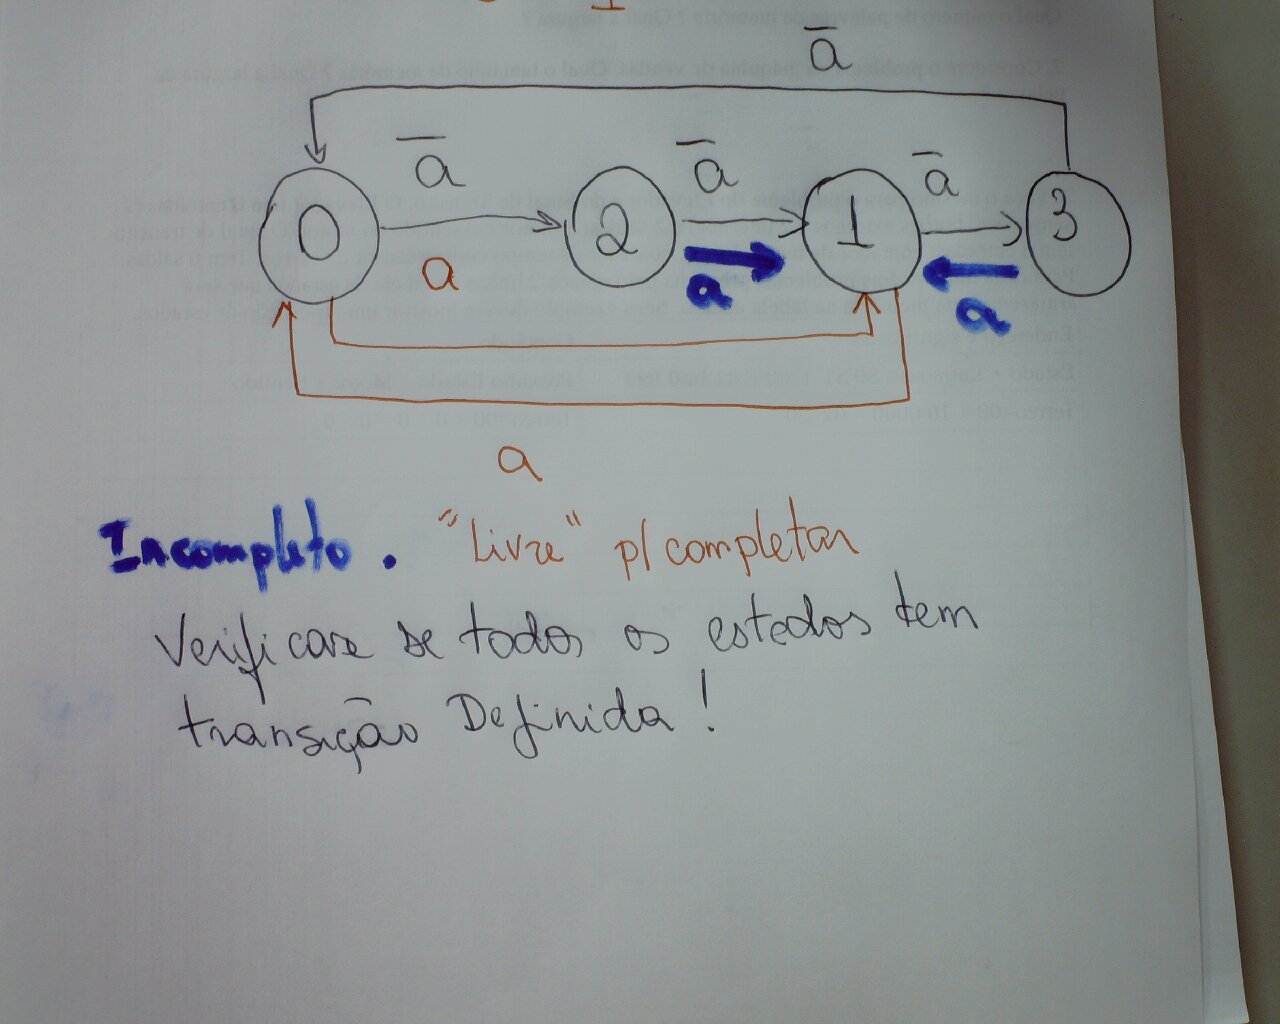 ā
ā ā ā
0 2 1 3
a a a
a
Incompleto. "Livre" p/ completar
Verificar se todos os estados tem
transição Definida!